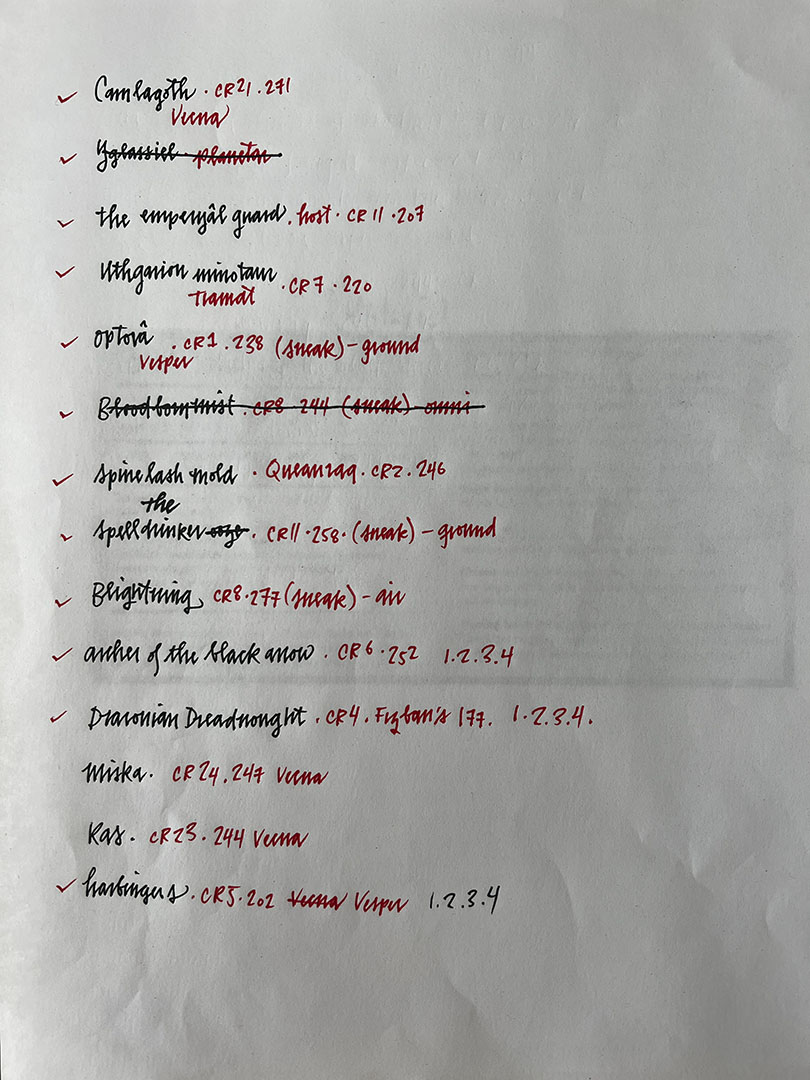 ✓ Camlagoth · CR21 · 271
Vecna
✓ Yglassiel · planetar
✓ the empyrjâl guard . host · CR 11 · 207
✓ Uthgarion minotaur
Tiamat · CR7 · 220
✓ optorâ . CR1 . 238 (sneak) - ground
Vesper
✓ Bloodbourmist . CR8 244 (sneak) - omni
✓ spinelash mold · Queanzaq . CR2 . 246
the
✓ spelldrinker ooze . CR11 · 258 · (sneak) - ground
✓ Blightning, CR8 · 277 (sneak) - air
✓ archer of the black arrow . CR6 · 252 1.2.3.4
✓ Draconian Dreadnought . CR4 . Fizban's 177. 1.2.3.4.
Miska . CR24 . 247 Vecna
Kas . CR23 · 244 Vecna
✓ harbingers . CR5 · 202 Vecna Vesper 1.2.3.4